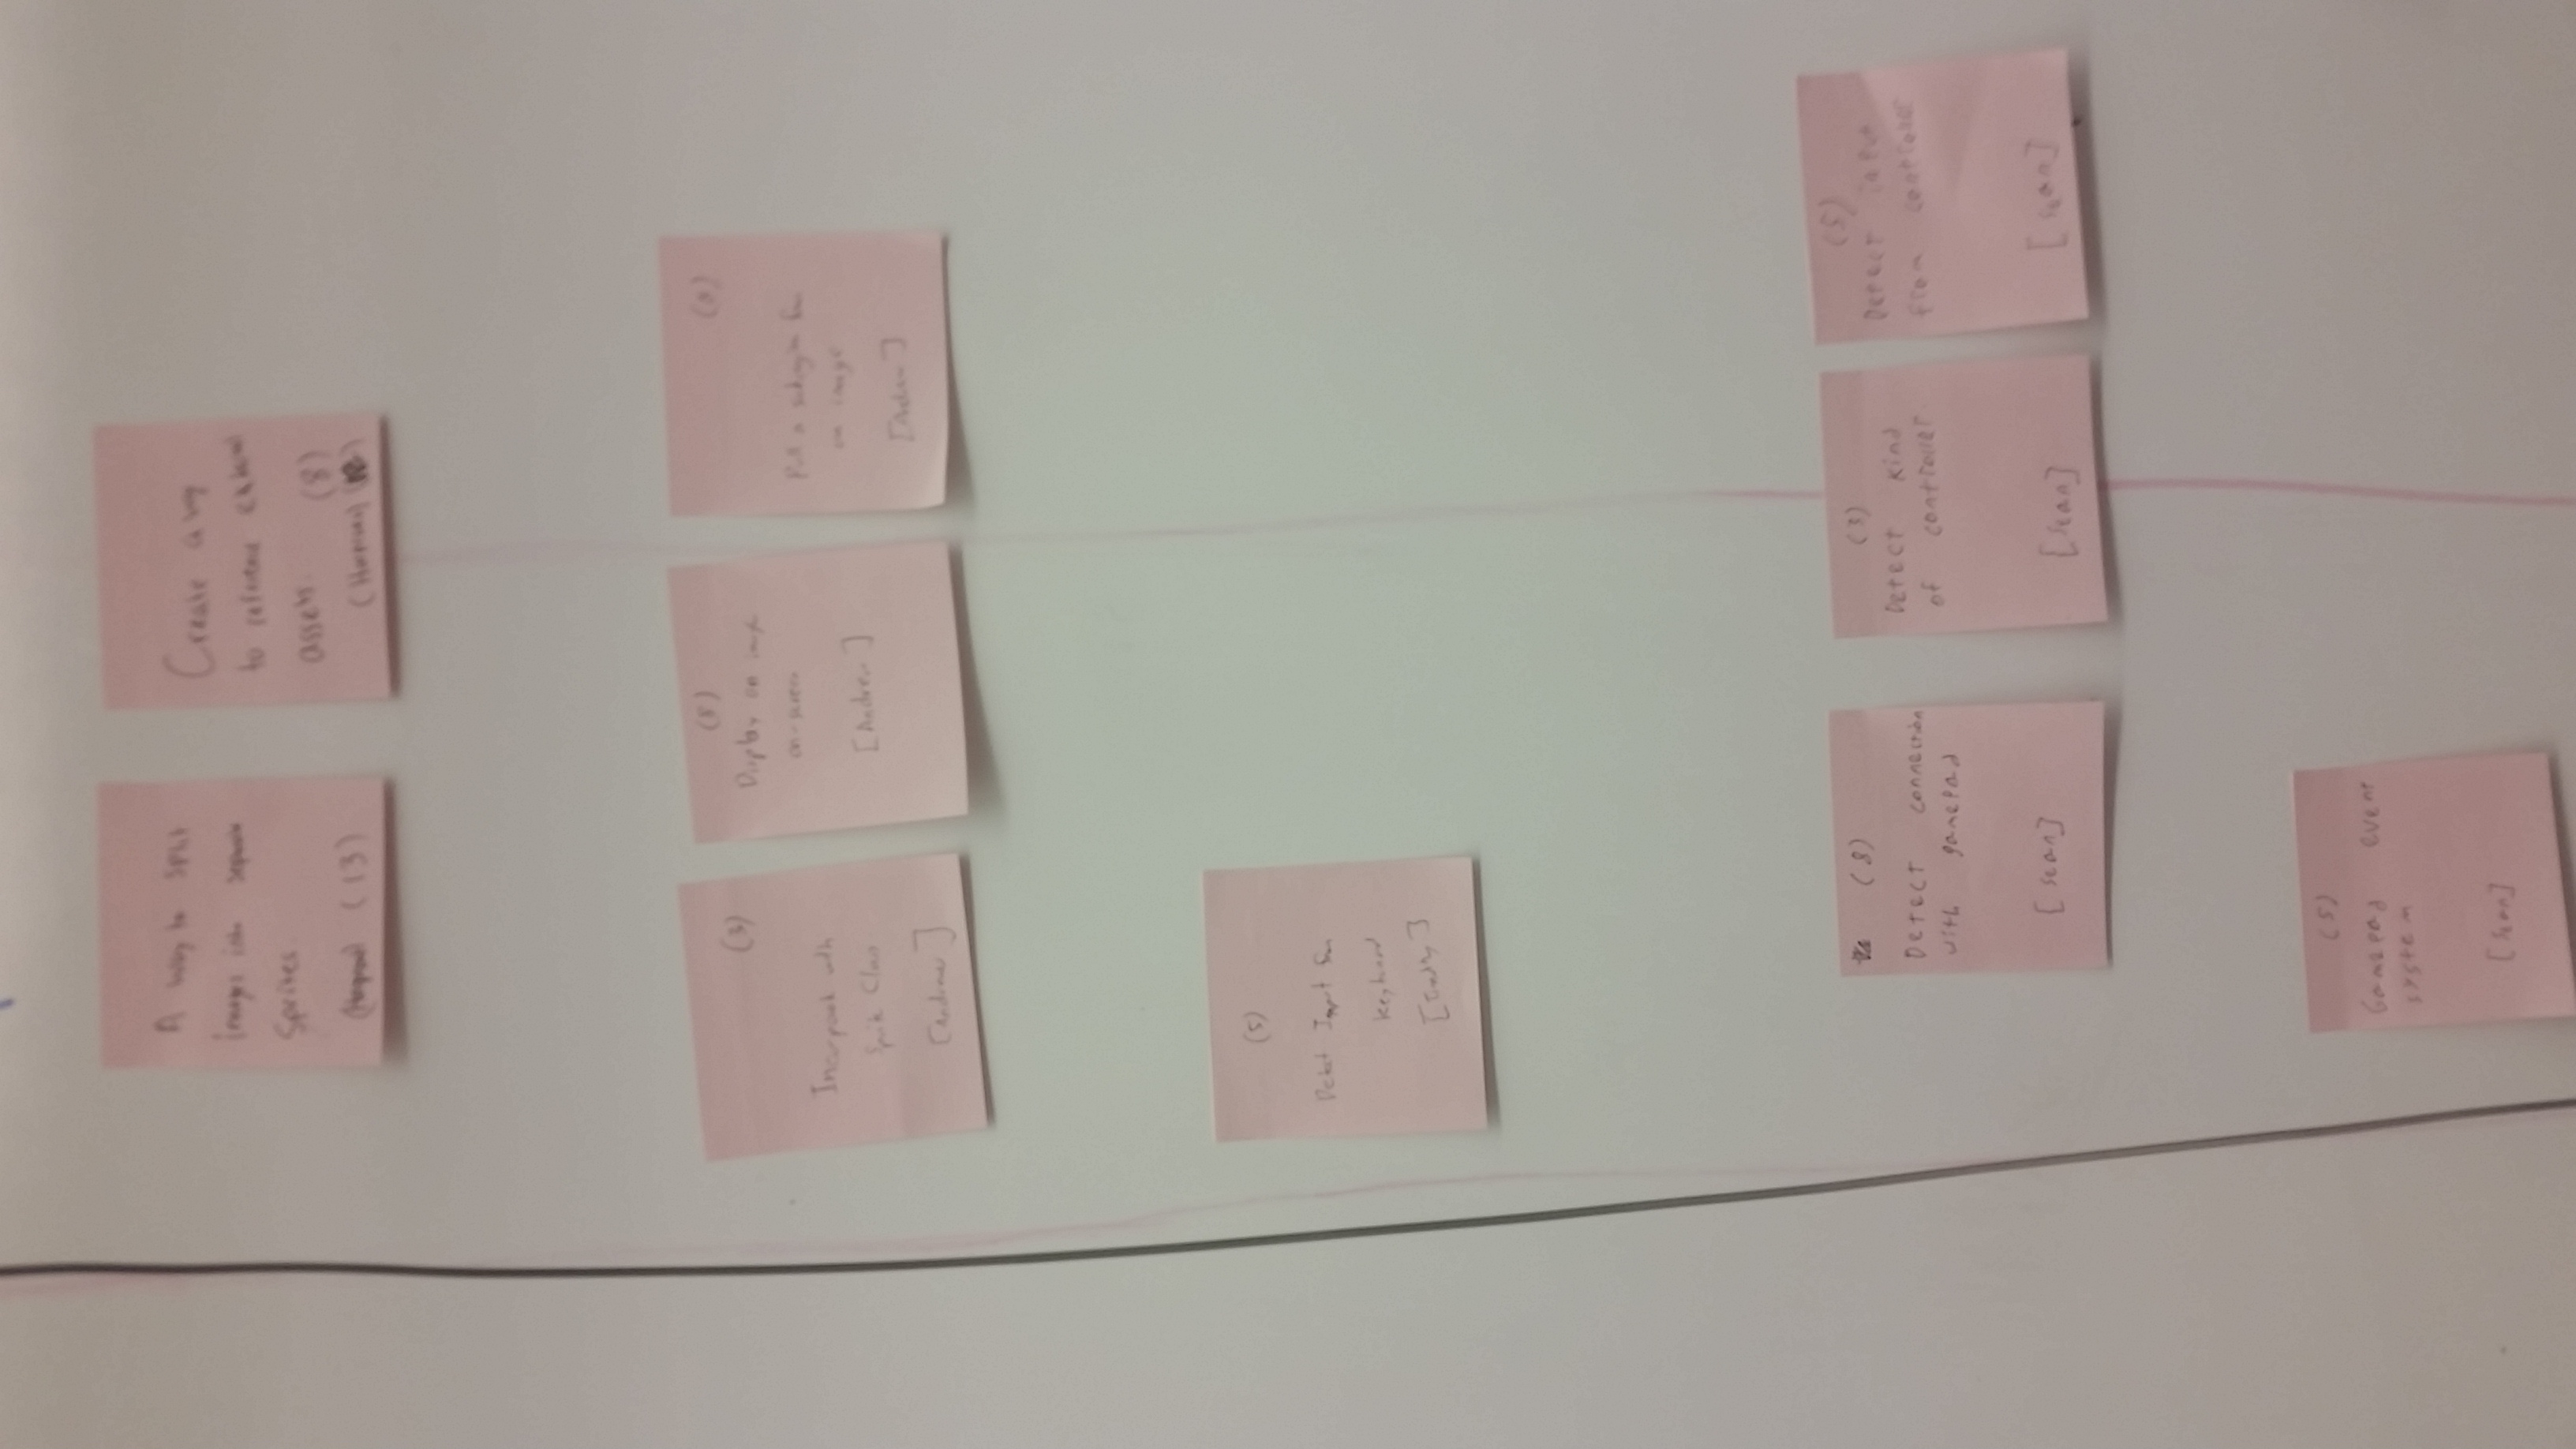 A way to split
images into separate
Sprites.
(13)
Create a way
to reference external
assets.
(8)
(3)
Incorporate with
Sprite Class
[Andrew]
(8)
Display an image
on-screen
[Andrew]
Pull a subregion from
an image
[Andrew]
(5)
Detect Input from
keyboard
(8)
Detect connection
with gamepad
[Sean]
(3)
Detect kind
of controller
[Sean]
(5)
Detect input
from controller
[Sean]
(5)
Gamepad event
system
[Sean]